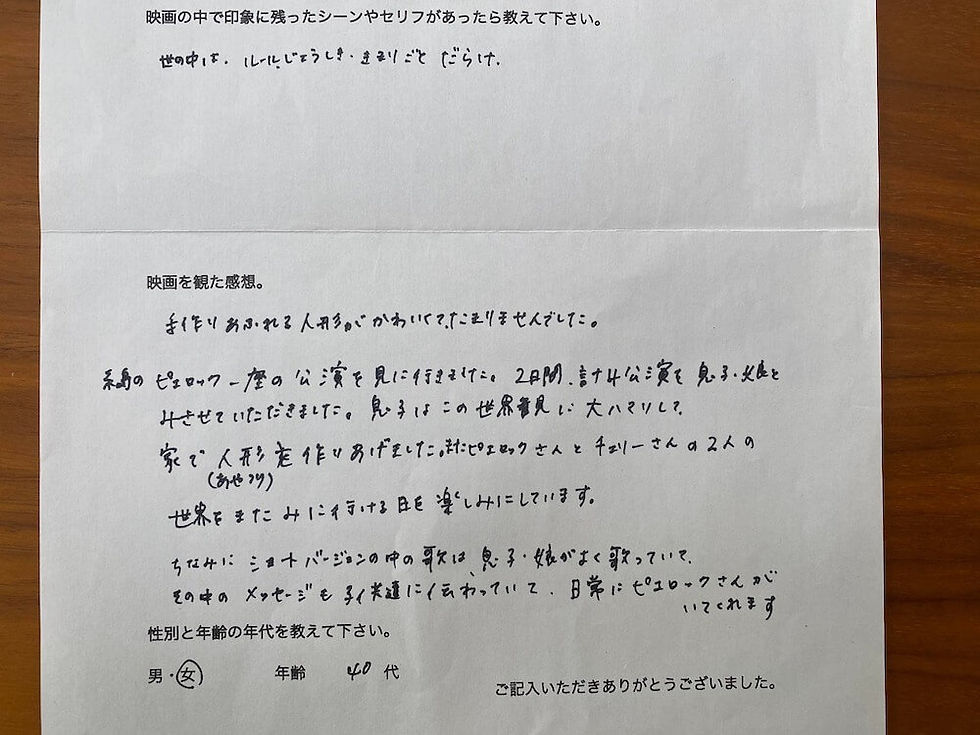 映画の中で印象に残ったシーンやセリフがあったら教えて下さい。
世の中は、ルール、じょうしき・きまりごと だらけ.
映画を観た感想。
手作りあふれる人形がかわいくて、たまりませんでした。
糸島の ピエロック一座の公演を見に行きました。2日間、計4公演を息子・娘と
みさせていただきました。息子はこの世界観に大ハマりして、
家で人形を作りあげました。またピエロックさんとチェリーさんの2人の
(あやつり)
世界をまたみに行ける日を楽しみにしています。
ちなみにショートバージョンの中の歌は、息子・娘がよく歌っていて、
その中のメッセージも子供達に伝わっていて、日常にピエロックさんが
いてくれます
性別と年齢の年代を教えて下さい。
男・女 年齢 40 代
ご記入いただきありがとうございました。